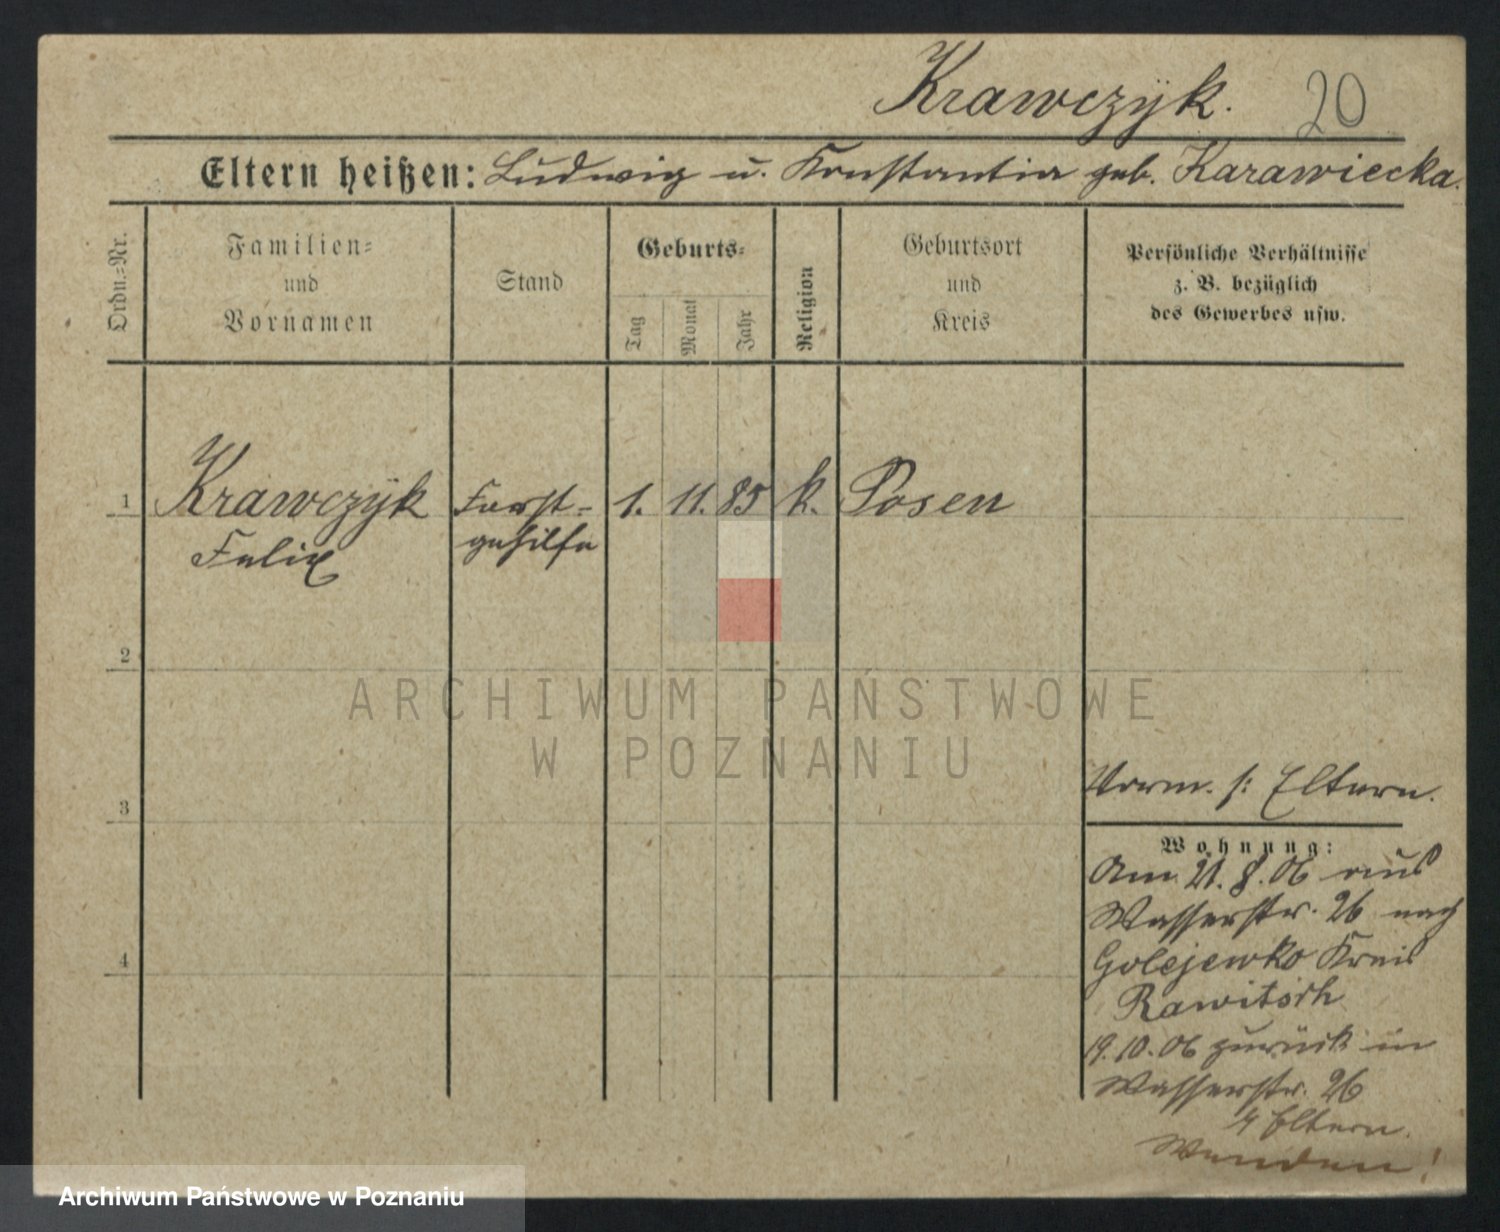 Krawczÿk. 20
Eltern heißen: Ludwig u. Konstantia geb. Karawiecka.
Ordn.=Nr.
Familien=
und
Vornamen
Stand
Geburts=
Tag
Monat
Jahr
Religion
Geburtsort
und
Kreis
Persönliche Verhältnisse
z. B. bezüglich
des Gewerbes usw.
1 Krawczÿk Forst= 1. 11. 85 k. Posen
Felix gehilfe
2
ARCHIWUM PAŃSTWOWE
W POZNANIU
3
4
Vorm. s: Eltern.
Wohnung:
Am 21. 8. 06 aus
Wasserstr. 26 nach
Golejewko Kreis
Rawitsch
19. 10. 06 zurück in
Wasserstr. 26
Eltern.
Wenden!
Archiwum Państwowe w Poznaniu